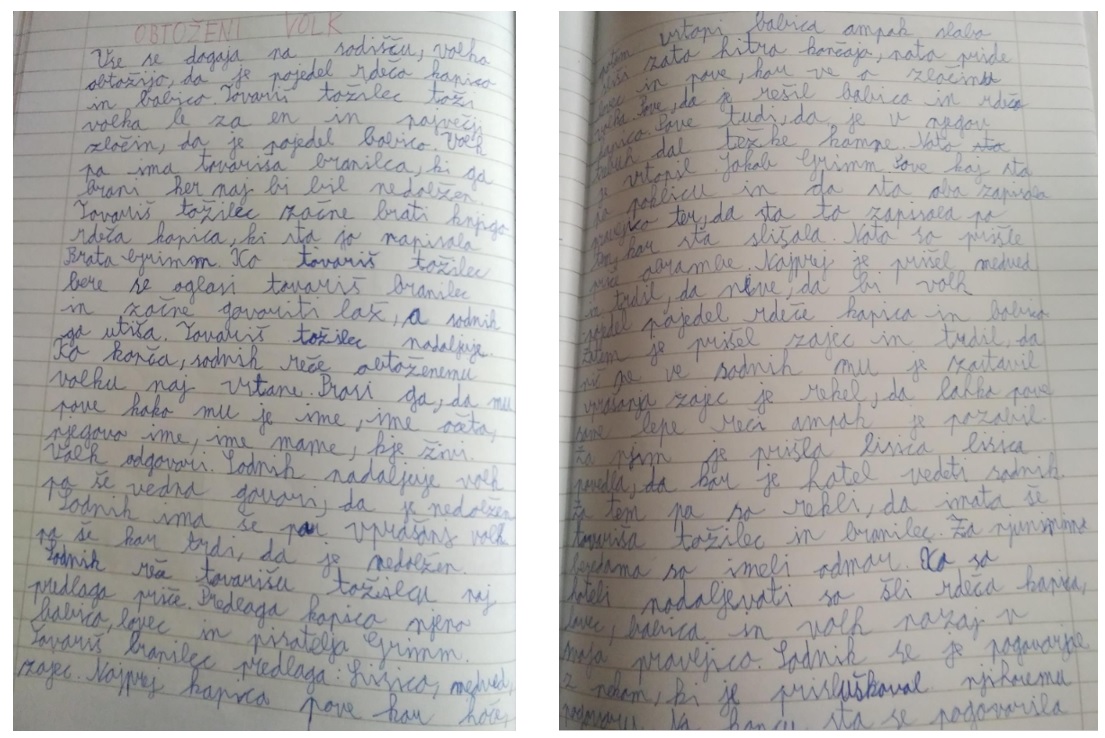 OBTOŽENI VOLK
Vse se dogaja na sodišču, volka
obtožijo, da je pojedel rdečo kapico
in babico. Tovariš tožilec toži
volka le za en in največji
zločin, da je pojedel babico. Volk
pa ima tovariša branilca, ki ga
brani ker naj bi bil nedolžen.
Tovariš tožilec začne brati knjigo
rdeča kapica, ki sta jo napisala
Brata Grimm. Ko tovariš tožilec
bere se oglasi tovariš branilec
in začne govoriti laž, a sodnik
ga utiša. Tovariš tožilec nadaljuje.
Ko konča, sodnik reče obtoženemu
volku naj vstane. Prosi ga, da mu
pove kako mu je ime, ime očeta,
njegovo ime, ime mame, kje živi.
Volk odgovori. Sodnik nadaljuje volk
pa še vedno govori, da je nedolžen
Sodnik ima še par vprašanj volk
pa še kar trdi, da je nedolžen.
Sodnik reče tovarišu tožilcu naj
predlaga priče. Predlaga kapico njeno
babico, lovec in pisatelja Grimm.
Tovariš branilec predlaga: Lisico, medved,
zajec. Najprej kapica pove kar hoče,
potem vstopi babica ampak slabo
sliši zato hitro končajo, nato pride
lovec in pove, kar ve o zločinu
volka. Pove, da je rešil babico in rdečo
kapico. Pove tudi, da je v njegov
trebuh dal težke kamne. Nato
je vstopil Jakob Grimm. Pove kaj sta
po poklicu in da sta oba zapisala
pravljico ter, da sta to zapisala po
tem, kar sta slišala. Nato so prišle
priče obrambe. Najprej je prišel medved
in trdil, da ne ve, da bi volk
pojedel rdeče kapico in babico
Zatem je prišel zajec in trdil, da
nič ne ve sodnik mu je zastavil
vprašanja zajec je rekel, da lahko pove
same lepe reči ampak je pozabil
Za njim je prišla lisica lisica
povedla, da kar je hotel vedeti sodnik
Za tem pa so rekli, da imata še
tovariša tožilec in branilec. Za njunimme
besedama so imeli odmor. Ko so
hoteli nadaljevati so šli rdeča kapica,
lovec, babica in volk nazaj v
svojo pravljico. Sodnik se je pogovarjal
z nekom, ki je prisluškoval njihovemu
pogovoru. Na koncu sta se pogovorila